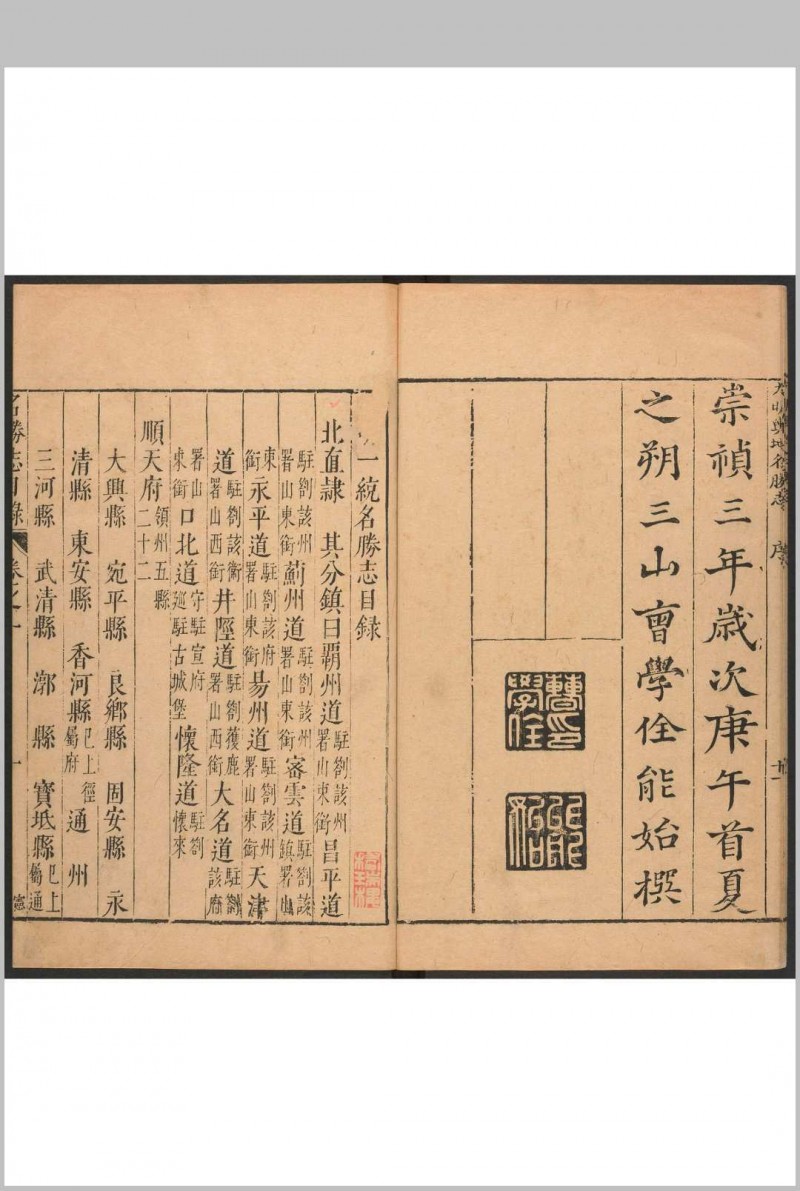 崇禎三年歲次庚午首夏
之朔三山曹學佺能始撰
一統名勝志目録
北直隷 其分鎮曰霸州道駐劄該州署山東銜昌平道
駐劄該州署山東銜薊州道駐劄該州署山東銜密雲道駐劄該鎮署山
東銜永平道駐劄該府署山東銜易州道駐劄該州署山東銜天津
道駐劄該衛署山西銜井陘道駐劄獲鹿署山西銜大名道駐劄該府
署山東銜口北道守駐宣府廵駐古城堡懷隆道駐劄懷來
順天府領州五縣二十二
大興縣 宛平縣 良鄉縣 固安縣 永
清縣 東安縣 香河縣已上徑屬府通州
三河縣 武清縣 漷縣 寶坻縣已上屬通
名勝志目録 卷之一 一